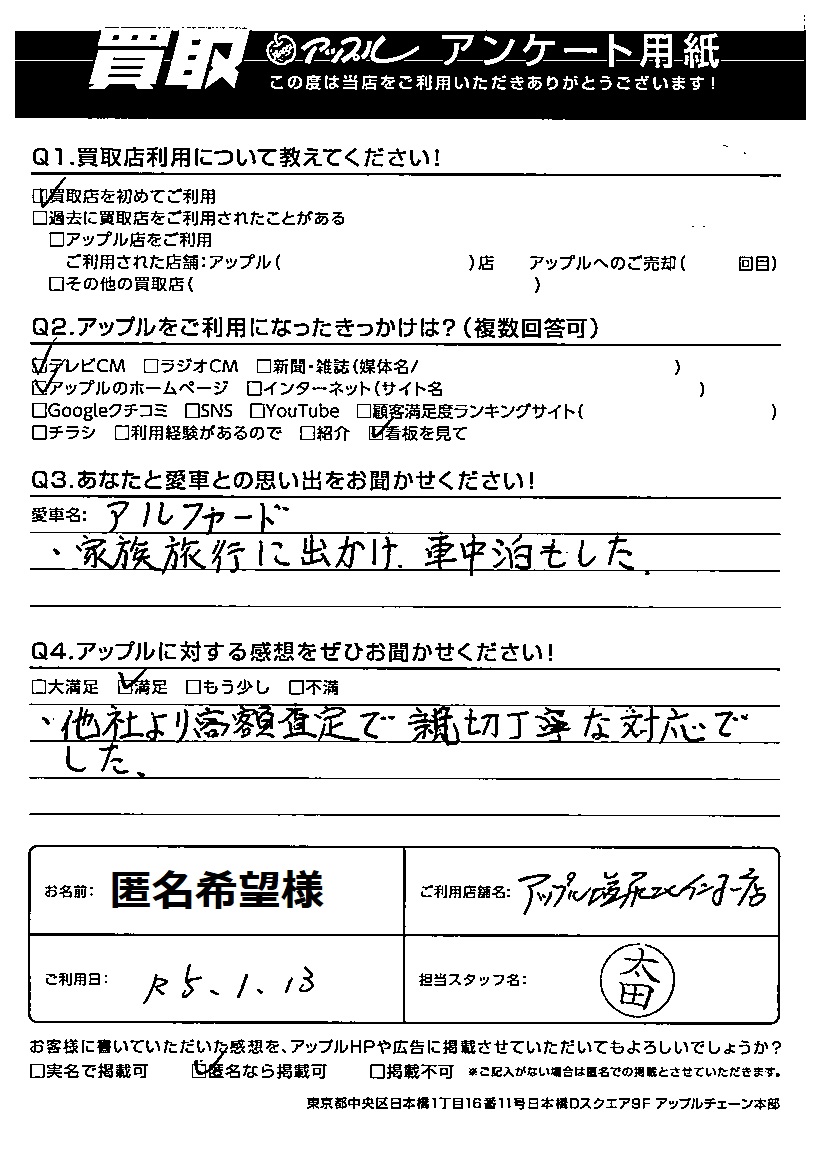 買取 アップル アンケート用紙
この度は当店をご利用いただきありがとうございます!
Q1.買取店利用について教えてください!
☑買取店を初めてご利用
□過去に買取店をご利用されたことがある
□アップル店をご利用
ご利用された店舗:アップル( )店 アップルへのご売却( 回目)
□その他の買取店( )
Q2.アップルをご利用になったきっかけは?(複数回答可)
☑テレビCM □ラジオCM □新聞・雑誌(媒体名/ )
☑アップルのホームページ □インターネット(サイト名 )
□Googleクチコミ □SNS □YouTube □顧客満足度ランキングサイト( )
□チラシ □利用経験があるので □紹介 ☑看板を見て
Q3.あなたと愛車との思い出をお聞かせください!
愛車名: アルファード
・家族旅行に出かけ、車中泊もした.
Q4.アップルに対する感想をぜひお聞かせください!
□大満足 ☑満足 □もう少し □不満
・他社より高額査定で親切丁寧な対応で
した、
お名前: 匿名希望様 ご利用店舗名: アップル塩尻北インター店
ご利用日: R5.1.13 担当スタッフ名: 太田
お客様に書いていただいた感想を、アップルHPや広告に掲載させていただいてもよろしいでしょうか?
□実名で掲載可 ☑匿名なら掲載可 □掲載不可 ※ご記入がない場合は匿名での掲載とさせていただきます。
東京都中央区日本橋1丁目16番11号日本橋Dスクエア9F アップルチェーン本部